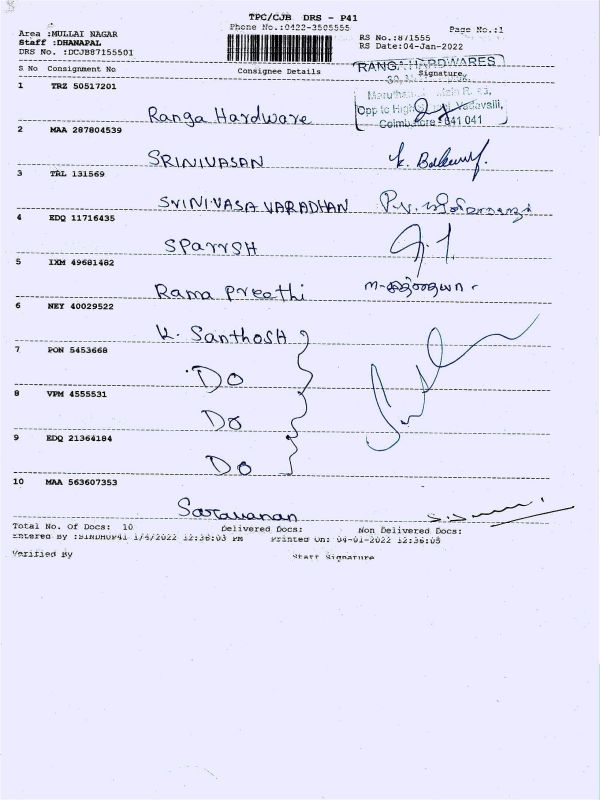 TPC/CJB DRS - P41
Phone No.:0422-3505555
Page No.:1
Area :MULLAI NAGAR
Staff :DHANAPAL
DRS No. :DCJB87155501
RS No.:871555
RS Date:04-Jan-2022
S No Consignment No Consignee Details Signature
RANGA HARDWARES
Opp to High Yadavalli,
Coimbatore - 641 041
1 TRZ 50517201
Ranga Hardware
2 MAA 287804539
SRINIVASAN
3 TRL 131569
SVINIVASA VARADHAN
4 EDQ 11716435
SPARRSH
5 IXM 49681482
Rama Preethi
6 NEY 40029522
K. Santhosh
7 PON 5453668
Do
8 VPM 4555531
Do
9 EDQ 21364184
Do
10 MAA 563607353
Saravanan
Total No. Of Docs: 10 Delivered Docs: Non Delivered Docs:
Entered By :BINDHUP41 1/4/2022 12:36:03 PM Printed On: 04-01-2022 12:36:05
Verified By Staff Signature